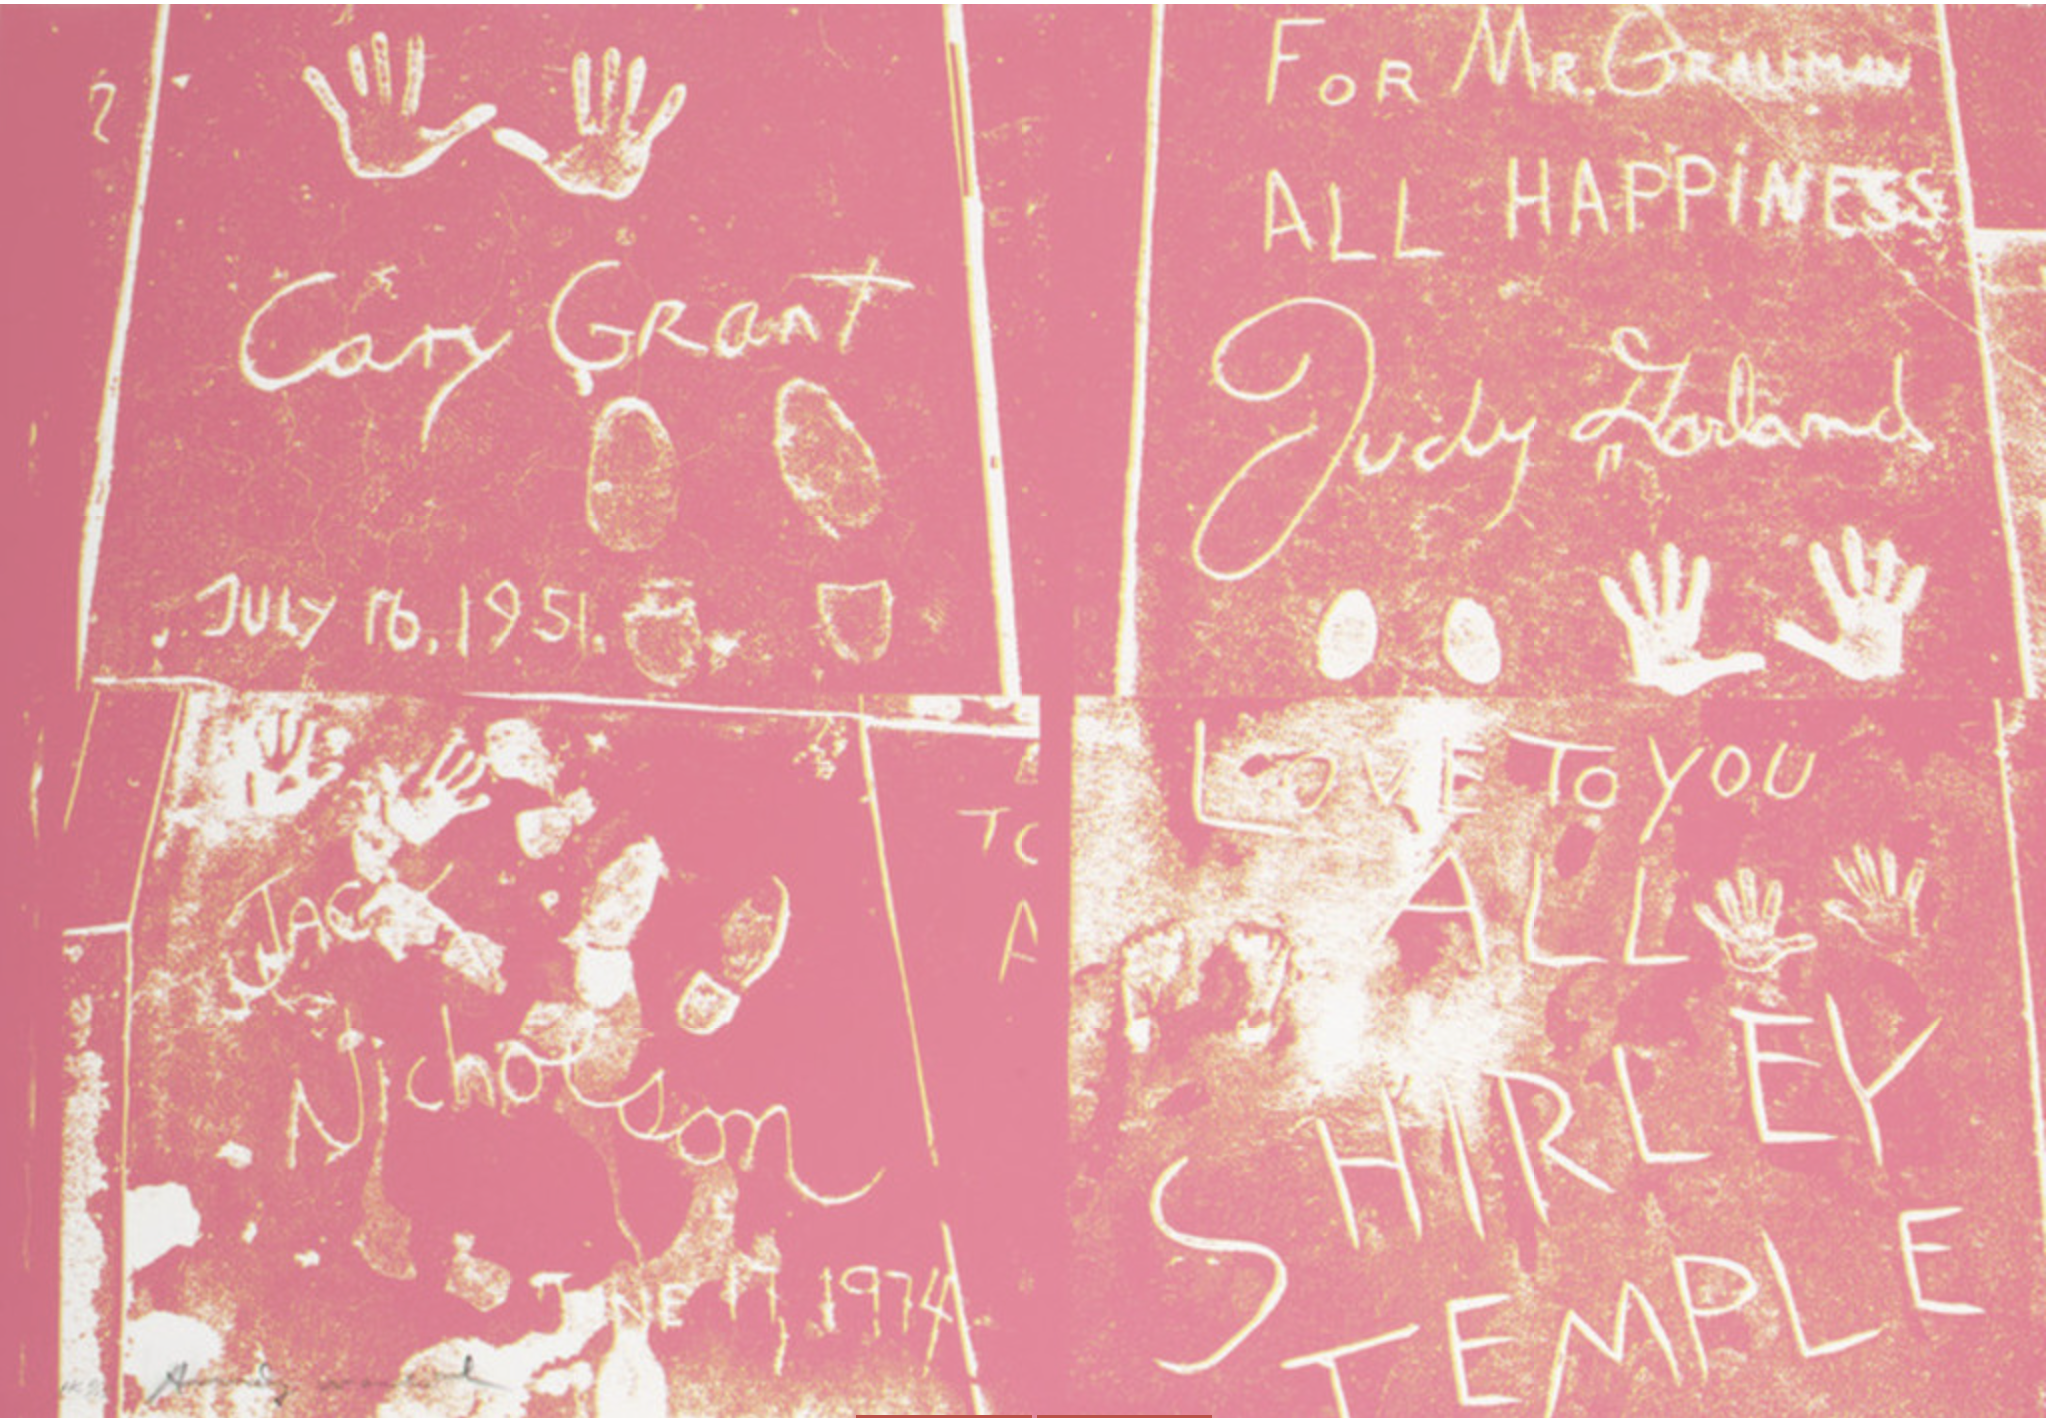 Cary Grant
JULY 16, 1951.
FOR MR. GRAUMAN
ALL HAPPINESS
Judy Garland
JACK
Nicholson
JUNE 17 1974
TO
A
LOVE TO YOU
ALL
SHIRLEY
TEMPLE